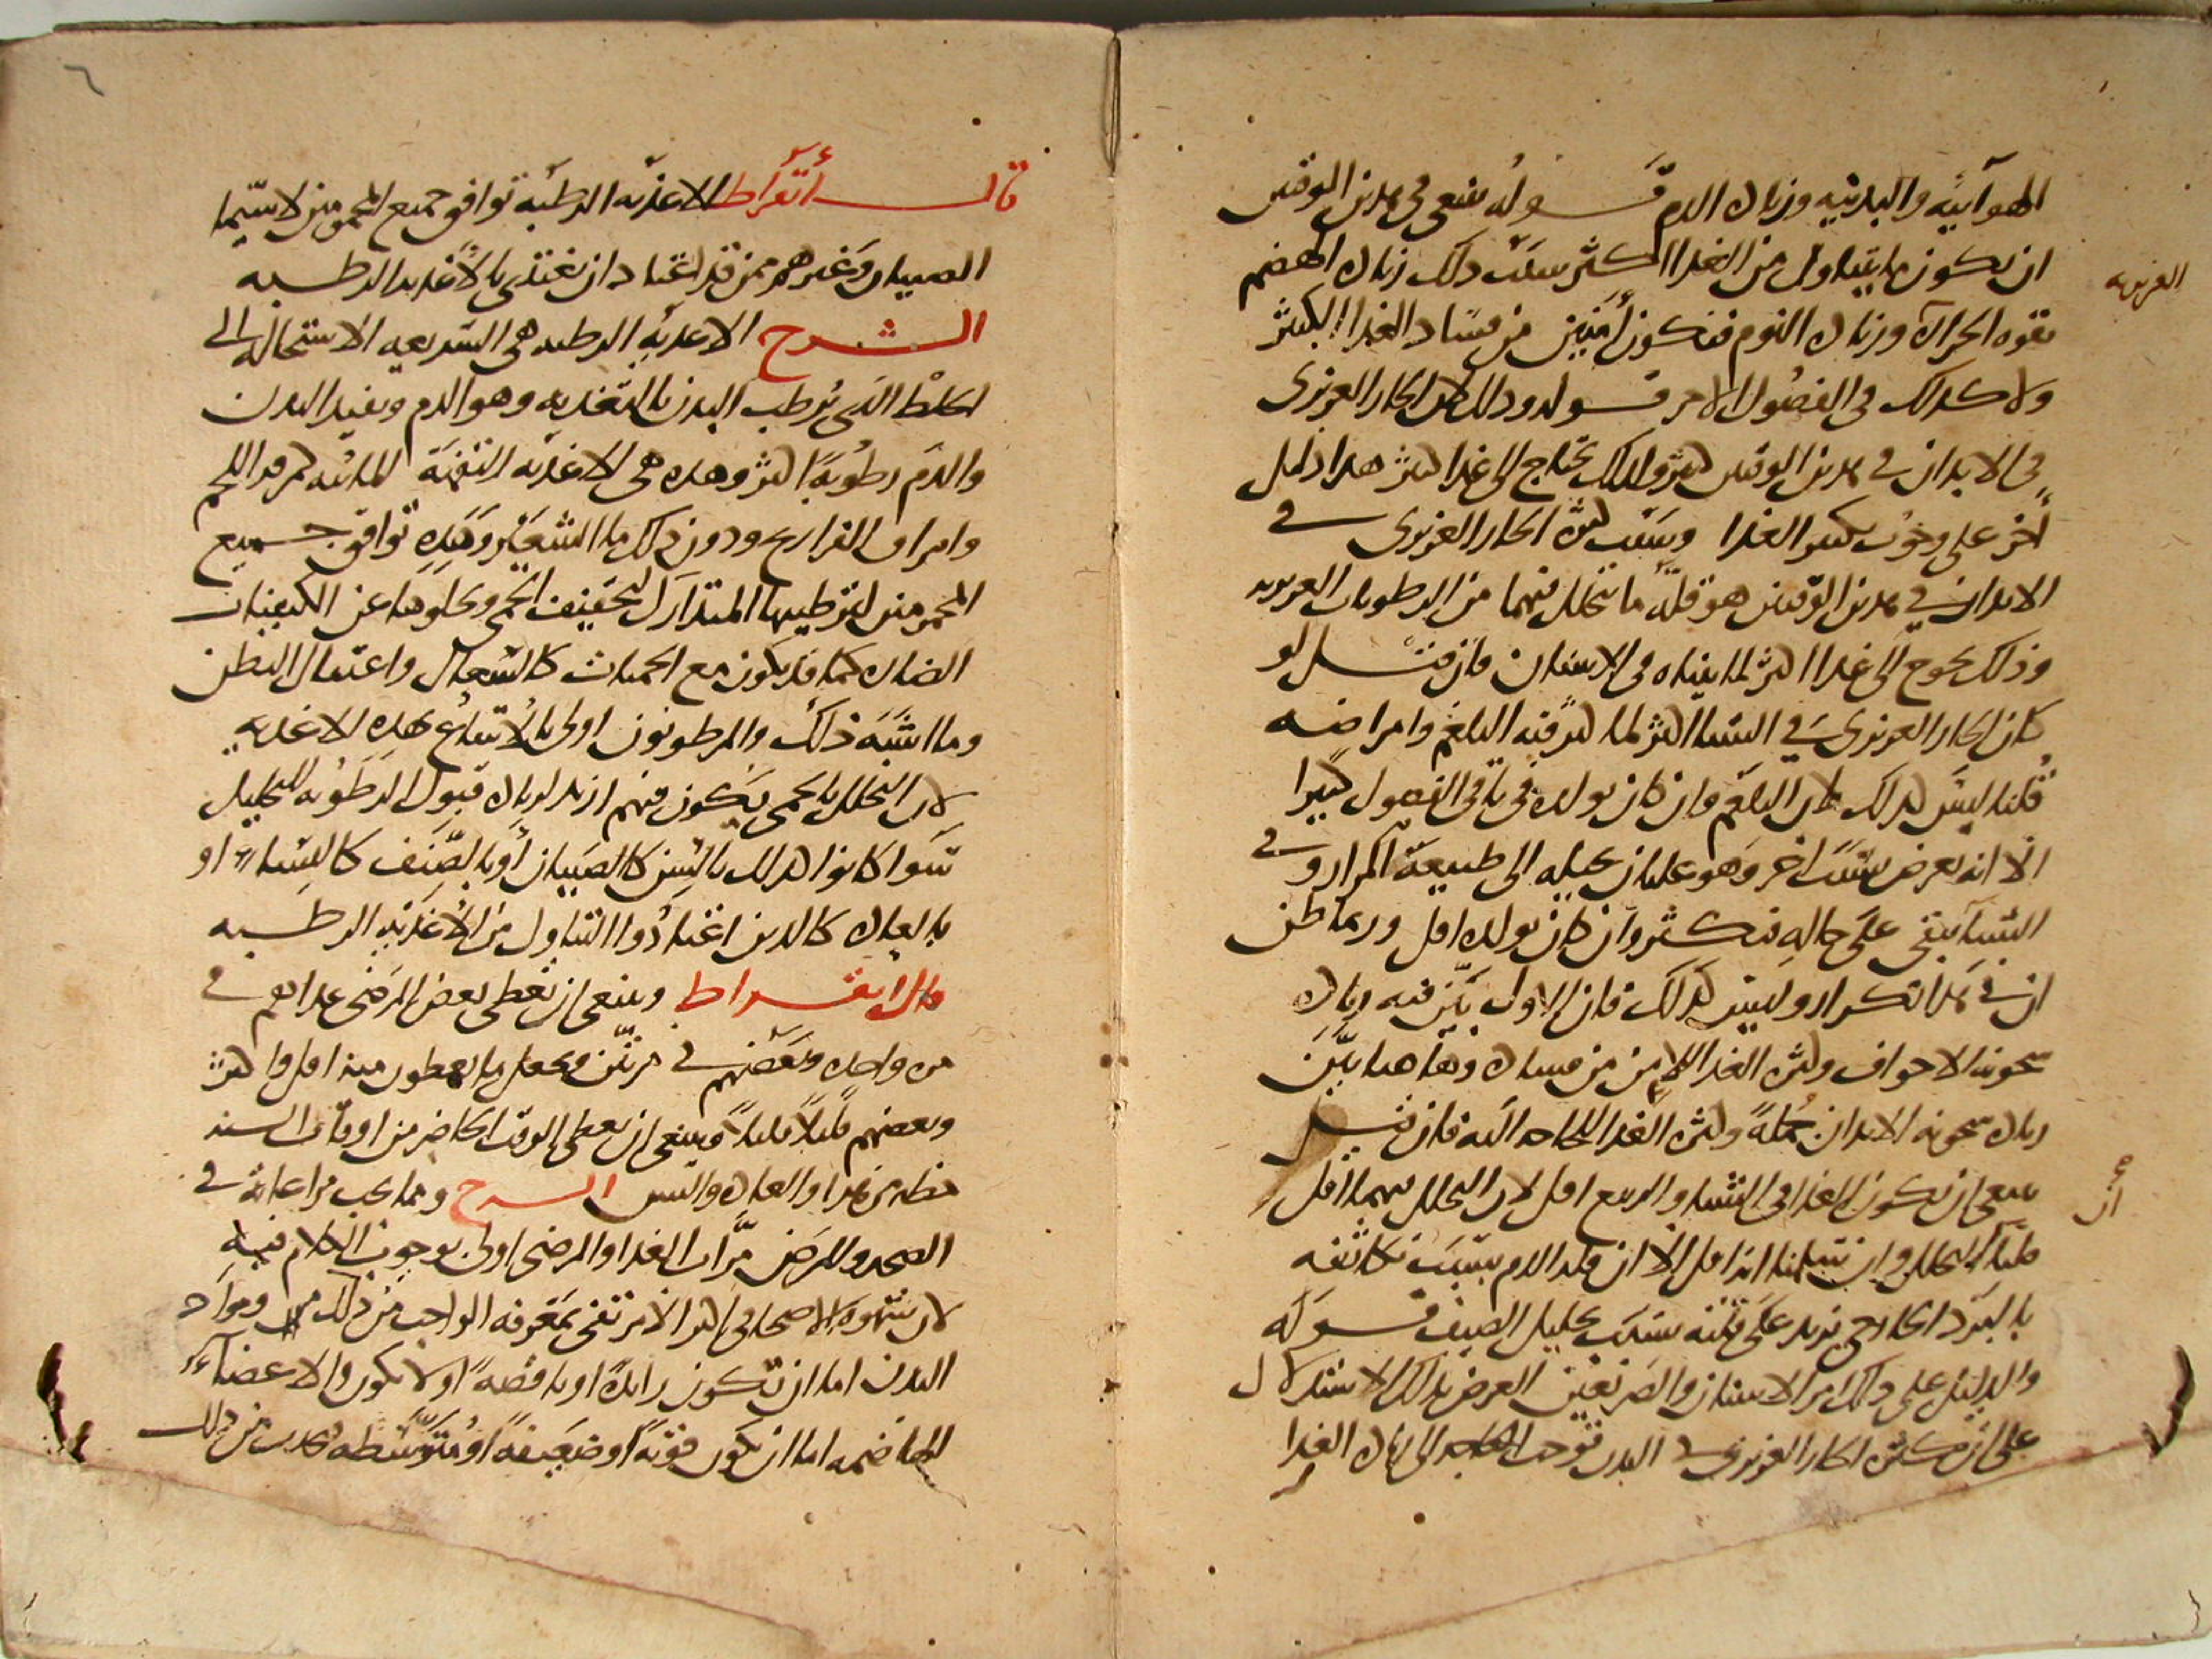 الهوآئية والبدنيه وزياده الدم قوله ينبغى فى هدين الوقتين
ان يكون ما يتناول من الغدا اكثر سبب دلك زياده الهضم
بقوه الحراره وزياده النوم فنكون أمنين من فساد الغدا الكثير
ولا كدلك فى الفصول الاخر قوله ودلك لان الحار الغريزى
فى الابدان فى هدين الوقتين كثير ولدلك تحتاج الى غدا اكثر هدا دليل
آخر على وجوب تكثير الغدا وسبب كثرة الحار الغريزى فى
الابدان فى هدين الوقتين هو قلة ما يتحلل فيهما من الرطوبات الغريزيه
الغريزيه
وذلك يحوج الى غدا اكثر لما بيناه فى الاسنان فان قيل لو
كان الحار الغريزى فى الشتا اكثر لما كثر فيه البلغم وامراضه
قلنا ليس كدلك لان البلغم وان كان تولده فى باقى الفصول كثيرا
الا انه يعرض سبب اخر وهو غليان يحيله الى طبيعة المرار وفى
الشتآ يبقى على حاله فيكثر وان كان تولده اقل وربما ظن
ان فى هدا تكرار وليس كدلك فان الاول بيّن فيه زياده
سخونه الاجواف وكثرة الغدا للامن من فساده وهاهنا بيّن
زياده سخونه الابدان جملةً وكثرة الغدا للحاجه اليه فان قيل
ينبغى ان يكون الغدا فى الشتا والربيع اقل لان التحلل فيهما اقل
أن
قلنا التحلل وان سلمنا انه اقل الا ان قلة الدم بسبب تكاثفه
بالبرد الخارجى يزيد على قلته بسبب تحليل الصيف قوله
والدليل على دلك امر الاسنان والصريعين الغرض بدلك الاستدلال
على ان كثرة الحار الغريزى فى البدن توجب الحاجه الى زياده الغدا
قال أبقراط الاغذيه الرطبه توافق جميع المحمومين لا سيّما
الصبيان وغيرهم ممن قد اعتاد ان يغتذى بالاغديه الرطبه
الشرح الاغديه الرطبه هى السريعه الاستحاله الى
الخلط الذى يُرطب البدن بالتغديه وهو الدم ويفيد البدن
والدم رطوبةً اكثر وهده هى الاغذيه التفهة المائيه كمرقه اللحم
وامراق الفراريج ودون ذلك ما الشعير وهَذِه توافق جميع
المحمومين لترطيبها المتدارك لتجفيف الحمى وخلوها عن الكيفيات
الضاره كما قد يكون مع الحميات كالسعال واعتقال البطن
وما اشبه ذلك والمرطوبون اولى بالانتفاع بهذه الاغديه
لان التحلل بالحمى يكون فيهم ازيد لزياده قبول الرطوبه للتحليل
سوا كانوا كدلك بالسن كالصبيان أو بالصنف كالنسآء او
بالعاده كالدين اعتادُوا التناول من الأغذيه الرطبه
قال ابقراط وينبغى ان يُعطى بعض المرضى غداهم فى
مره واحده وبعضهم فى مرتين ويجعل ما يعطون منه اقل واكثر
وبعضهم قليلاً قليلاً وينبغى ان يعطى الوقت الحاضر من اوقات السنه
حظه من هدا والعاده والسن الشرح ومما يجب مراعاته فى
الصحه والمرض مرّات الغدا والمرضى اولى بوجوب الكلام فيه
لان شهوة الاصحا فى اكثر الامر تفى بمعرفه الواجب من ذلك ومواد
البدن اما ان تكون زايدةً او ناقصةً او لا يكون والاعضآء
الهاضمه اما ان يكون قويةً أو ضعيفةً أو متوسّطه يحدث من دلك